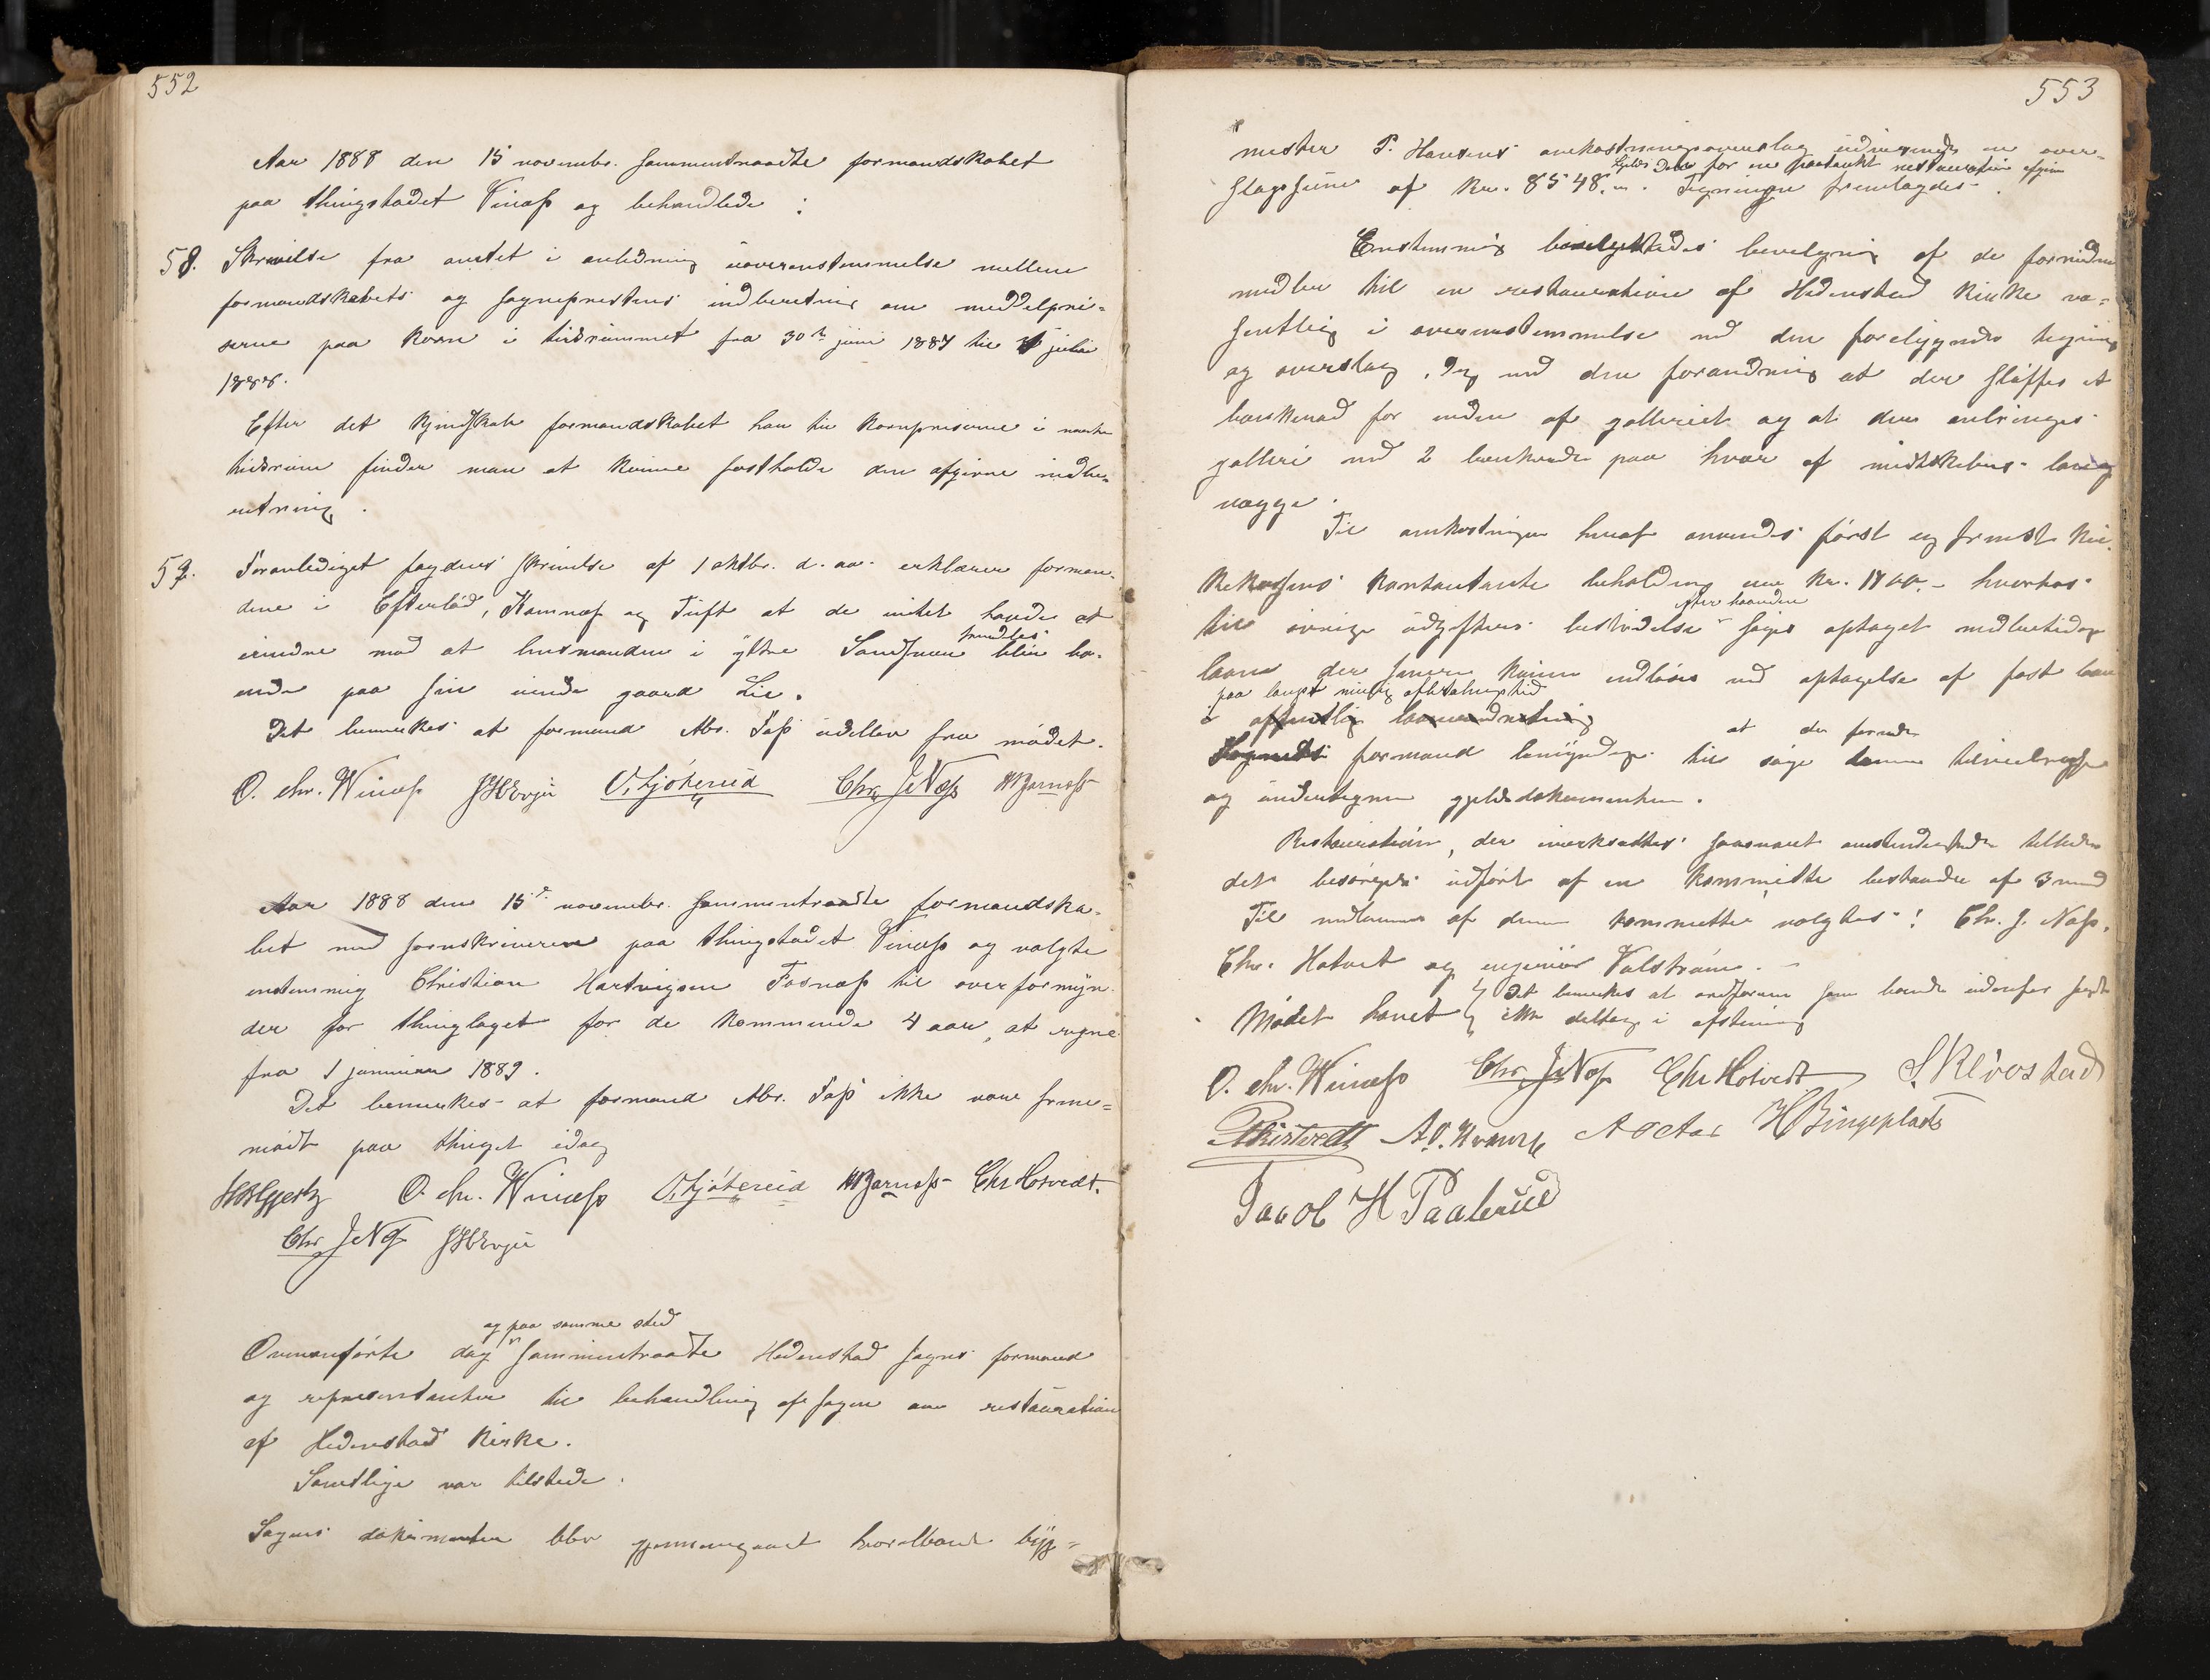 552
Aar 1888 den 15 novembr. sammentraadte formandskabet
paa thingstadet Vinæs og behandlede :
58. Skrivelse fra amtet i anledning uoverenstemmelse mellem
formandskabets og sogneprestens indberetning om middelpri=
serne paa korn i tidsrummet fra 30te juni 1887 til juli
1888.
Efter det kjendskab formandskabet har til kornpriserne i nævnte
tidsrum finder man at kunne fastholde den afgivne indbe=
retning.
59. Foranlediget fogdens skrivelse af 1 oktbr. d. aa. erklærer forman=
dene i Eftelød, Komnæs og Tuft at de intet havde at
erindre mod at husmanden i yttre Sandsvær blir bo=
ende paa sin gaard Lie.
Det bemerkes at formand Abr. Tass udeblev fra mødet.
O. Chr. Winæss JHEvju O. Kjøkerud Chr JNæss
Aar 1888 den 15de novembr. sammentraadte formandska=
bet med sorenskriveren paa thingstadet Vinæss og valgte
enstemmig Christian Hartvigsen Fosnæss til overformyn=
der for thinglaget for de kommende 4 aar, at regne
fra 1 januar 1889.
Det bemerkes at formand Abr. Tass ikke var frem=
mødt paa thinget idag
O. Chr. Winæss O. Kjøkerud Chr Hotvedt.
Chr JNæss JHEvju
og paa samme sted
Ovenanførte dag sammentraadte Hedenstad sogns formænd
og representanter til behandling af sagen om restauration
af Hedenstad kirke.
Samtlige var tilstede.
Sagens dokumenter blev gjennemgaaet hvoriblandt byg=
553
mester P. Hansens omkostningsoverslag udvisende en over=
for en paatænkt restauration
slagssum af Kr. 8548. Tegninger fremlagdes.
Enstemmig besluttedes bevilgning af de fornødne
midler til en restauration af Hedenstad kirke væ=
sentlig i overenstemmelse med den foreliggende tegning
og overslag, dog med den forandring at der sløifes et
benkerad for enden af galleriet og at der anbringes
galleri med 2 benkerader paa hver af midtskibets lang
vægge.
Til omkostningen heraf anvendes først og fremst kir=
kekassens kontante beholdning Kr. 1800.- hvorhos
efter haanden
til øvrige udgifters bestridelse søges optaget midlertidige
laan der senere kunne indløses ved optagelse af fast laan
paa længst mulig afbetalingstid
i offentlig laaneindretning
at de fornødne
Sognets formand bemyndiges til søge tilveiebragt
og undertegne gjeldsdokumenter.
Restaurationen, der iverksættes saasnart omstændighederne tillader
det besørges udført af en kommitte bestaaende af 3 mænd
Til medlemmer af denne kommitte valgtes : Chr. J. Næss,
Chr. Hotvet og ingeniør Valstrøm. –
Det bemerkes at ordføreren som boende udenfor sognet
Mødet hævet ikke deltog i afstemning
O. Chr. Winæss Chr JNæss Chr Hotvedt S. Klovstad
HBingeplads
Jacob H Paalerud